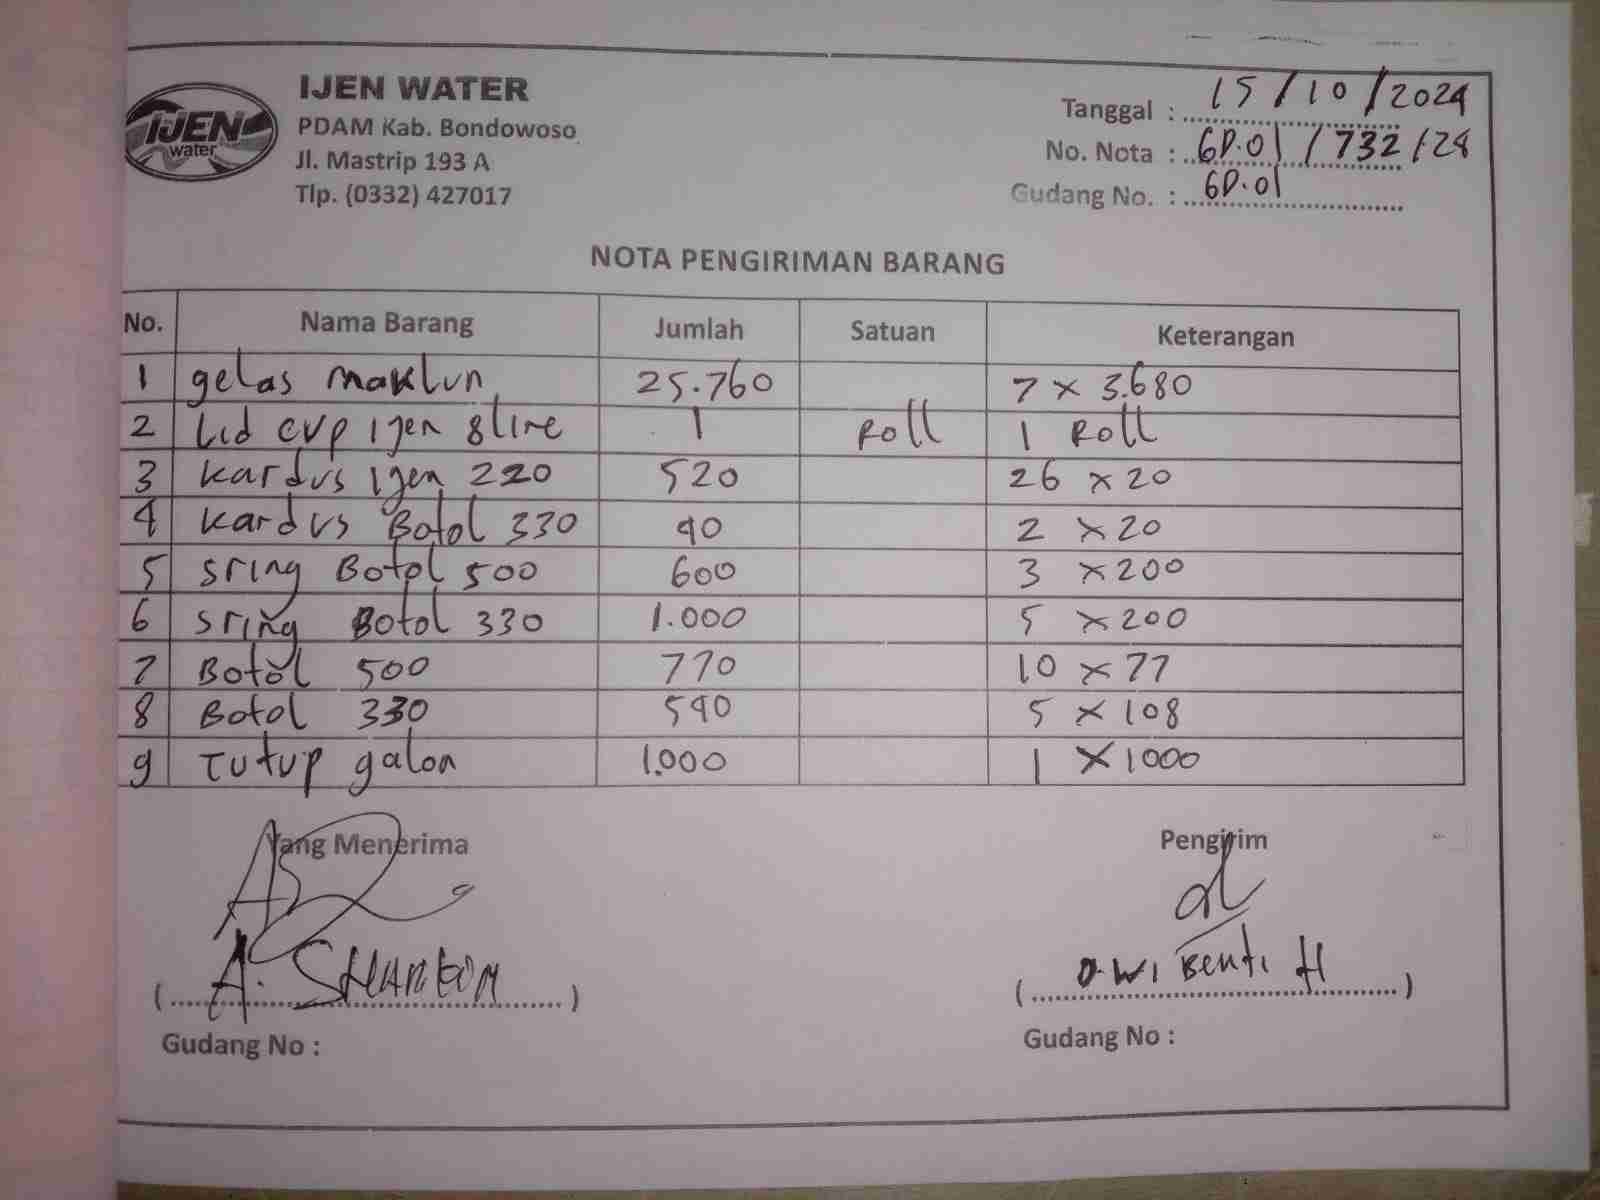 IJEN WATER
PDAM Kab. Bondowoso
Jl. Mastrip 193 A
Tlp. (0332) 427017
IJEN
water
Tanggal : 15/10/2024
No. Nota : GD.01/732/24
Gudang No. : GD.01
NOTA PENGIRIMAN BARANG
No. Nama Barang Jumlah Satuan Keterangan
1 gelas maklun 25.760 7 x 3.680
2 Lid cup ijen 8line 1 Roll 1 Roll
3 kardus ijen 220 520 26 x 20
4 kardus Botol 330 40 2 x 20
5 sring Botol 500 600 3 x 200
6 sring Botol 330 1.000 5 x 200
7 Botol 500 770 10 x 77
8 Botol 330 540 5 x 108
9 Tutup galon 1.000 1 x 1000
Yang Menerima Pengirim
(A. ) (Dwi H)
Gudang No : Gudang No :